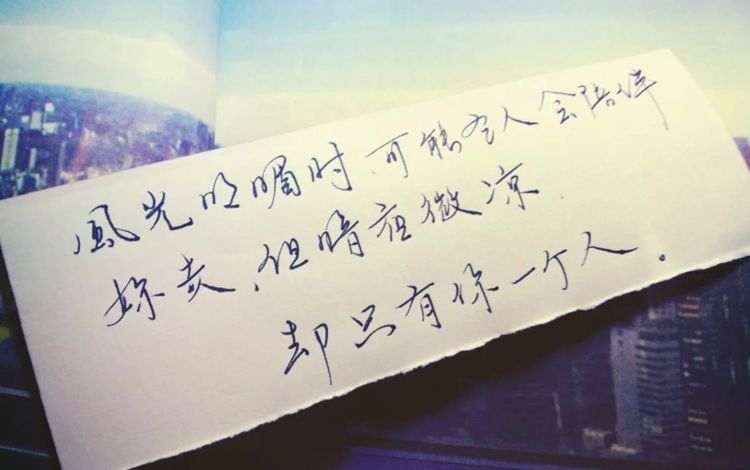 風光明媚时,可能有人会陪伴
妳走,但暗夜微凉,
却只有你一个人。